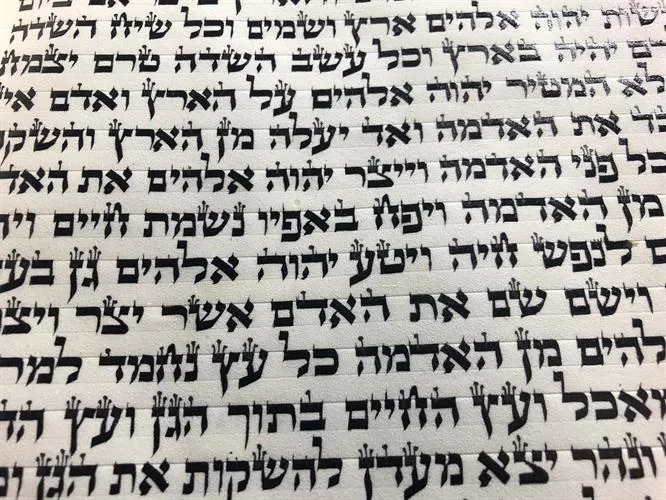 עשות יהוה אלהים ארץ ושמים וכל שיח השדה
יהיה בארץ וכל עשב השדה טרם יצמח
לא המטיר יהוה אלהים על הארץ ואדם
את האדמה ואד יעלה מן הארץ והשק
כל פני האדמה וייצר יהוה אלהים את האד
מן האדמה ויפח באפיו נשמת חיים
לנפש חיה ויטע יהוה אלהים גן
וישם שם את האדם אשר יצר
להים מן האדמה כל עץ נחמד למר
אכל ועץ החיים בתוך הגן ועץ
ונהר יצא מעדן להשקות את הגן